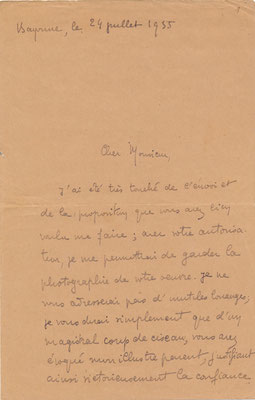 Bayonne, le 24 juillet 1935
Cher Monsieur,
J'ai été très touché de l'envoi et
de la proposition que vous avez bien
voulu me faire ; avec votre autorisa
tion, je me permettrai de garder la
photographie de votre œuvre. Je ne
vous adresserai pas d'inutiles louanges;
je vous dirai simplement que d'un
magistral coup de ciseau, vous avez
évoqué mon illustre parent, justifiant
ainsi victorieusement la confiance